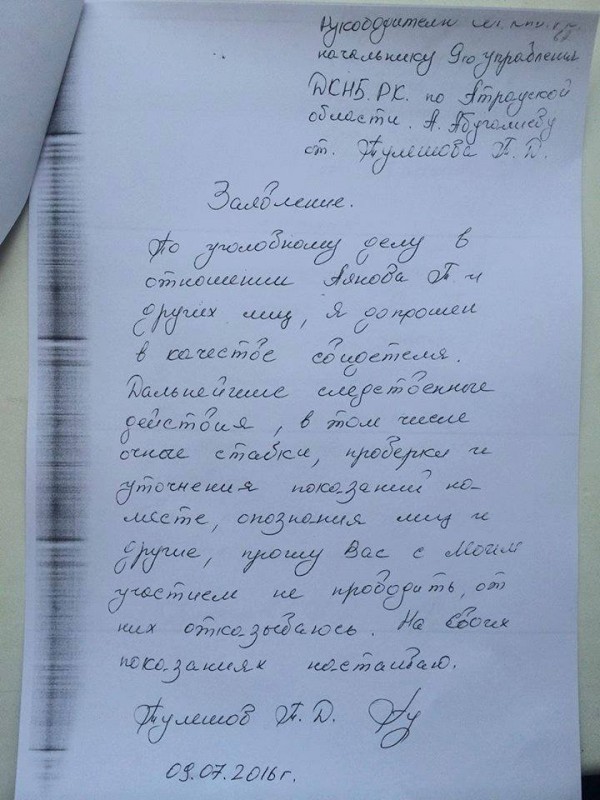 Руководителю
начальнику 9го управления
ДСНБ. РК. по Атрауской
области. А. Абуголиеву
от. Тулешова Т. Д.
Заявление.
По уголовному делу в
отношении Аянова Т и
других лиц, я допрошен
в качестве свидетеля.
Дальнейшие следственные
действия, в том числе
очные ставки, проверки и
уточнения показаний на-
месте, опознания лиц и
другие, прошу Вас с моим
участием не проводить, от
них отказываюсь. На своих
показаниях настаиваю.
Тулешов Т. Д.
09.07.2016 г.